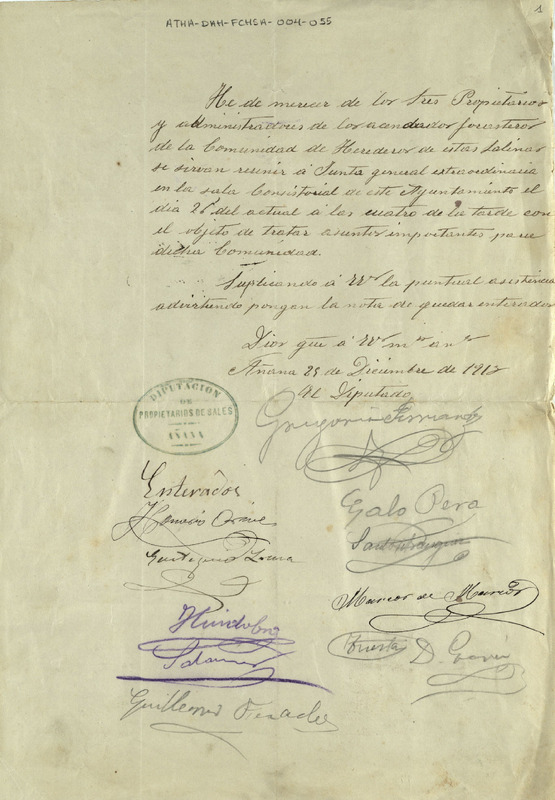 ATHA-DAH-FCHSA-004-055
1
He de merecer de los tres Propietarios
y administradores de los acendados forasteros
de la Comunidad de Herederos de estas Salinas
se sirvan reunir á Junta general extraordinaria
en la sala Consistorial de este Ayuntamiento el
dia 26 del actual á las cuatro de la tarde con
el objeto de tratar asuntos importantes para
dicha Comunidad.
Suplicando á la puntual asistencia
advirtiendo pongan la nota de quedar enterados
Dios gue á
Añana 25 de Diciembre de 1912
El Diputado
DIPUTACION
DE
PROPIETARIOS DE SALES
AÑANA
Gregorio
Enterados
Galo Pera
Marcos de
Huidobro
Huerta D.
Guillermo